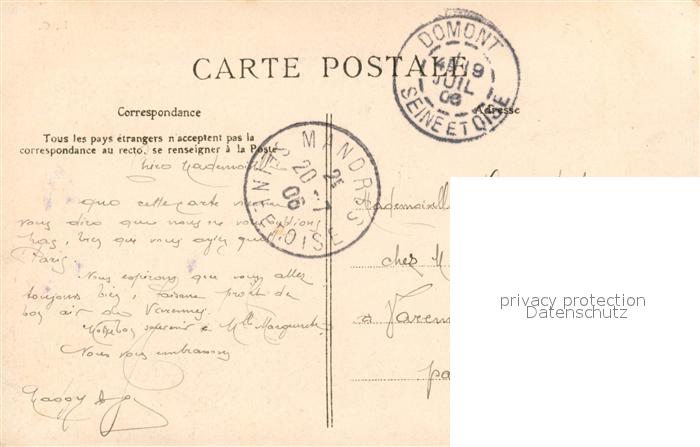 CARTE POSTALE
DOMONT
19
JUIL
06
SEINE ET OISE
Correspondance
Adresse
Tous les pays étrangers n'acceptent pas la
correspondance au recto, se renseigner à la Poste
MANDRES
20 7
06
SEINE ET OISE
Mademoiselle
Que cette carte
vous dire que nous ne vous oublions
pas, bien que vous ayez
Paris.
Nous espérons que vous allez
toujours bien, faisant
bon air de Varennes
souvenir à Mlle Marguerite
Nous vous embrassons
Mademoiselle
chez M
à Varenn
pa
privacy protection
Datenschutz